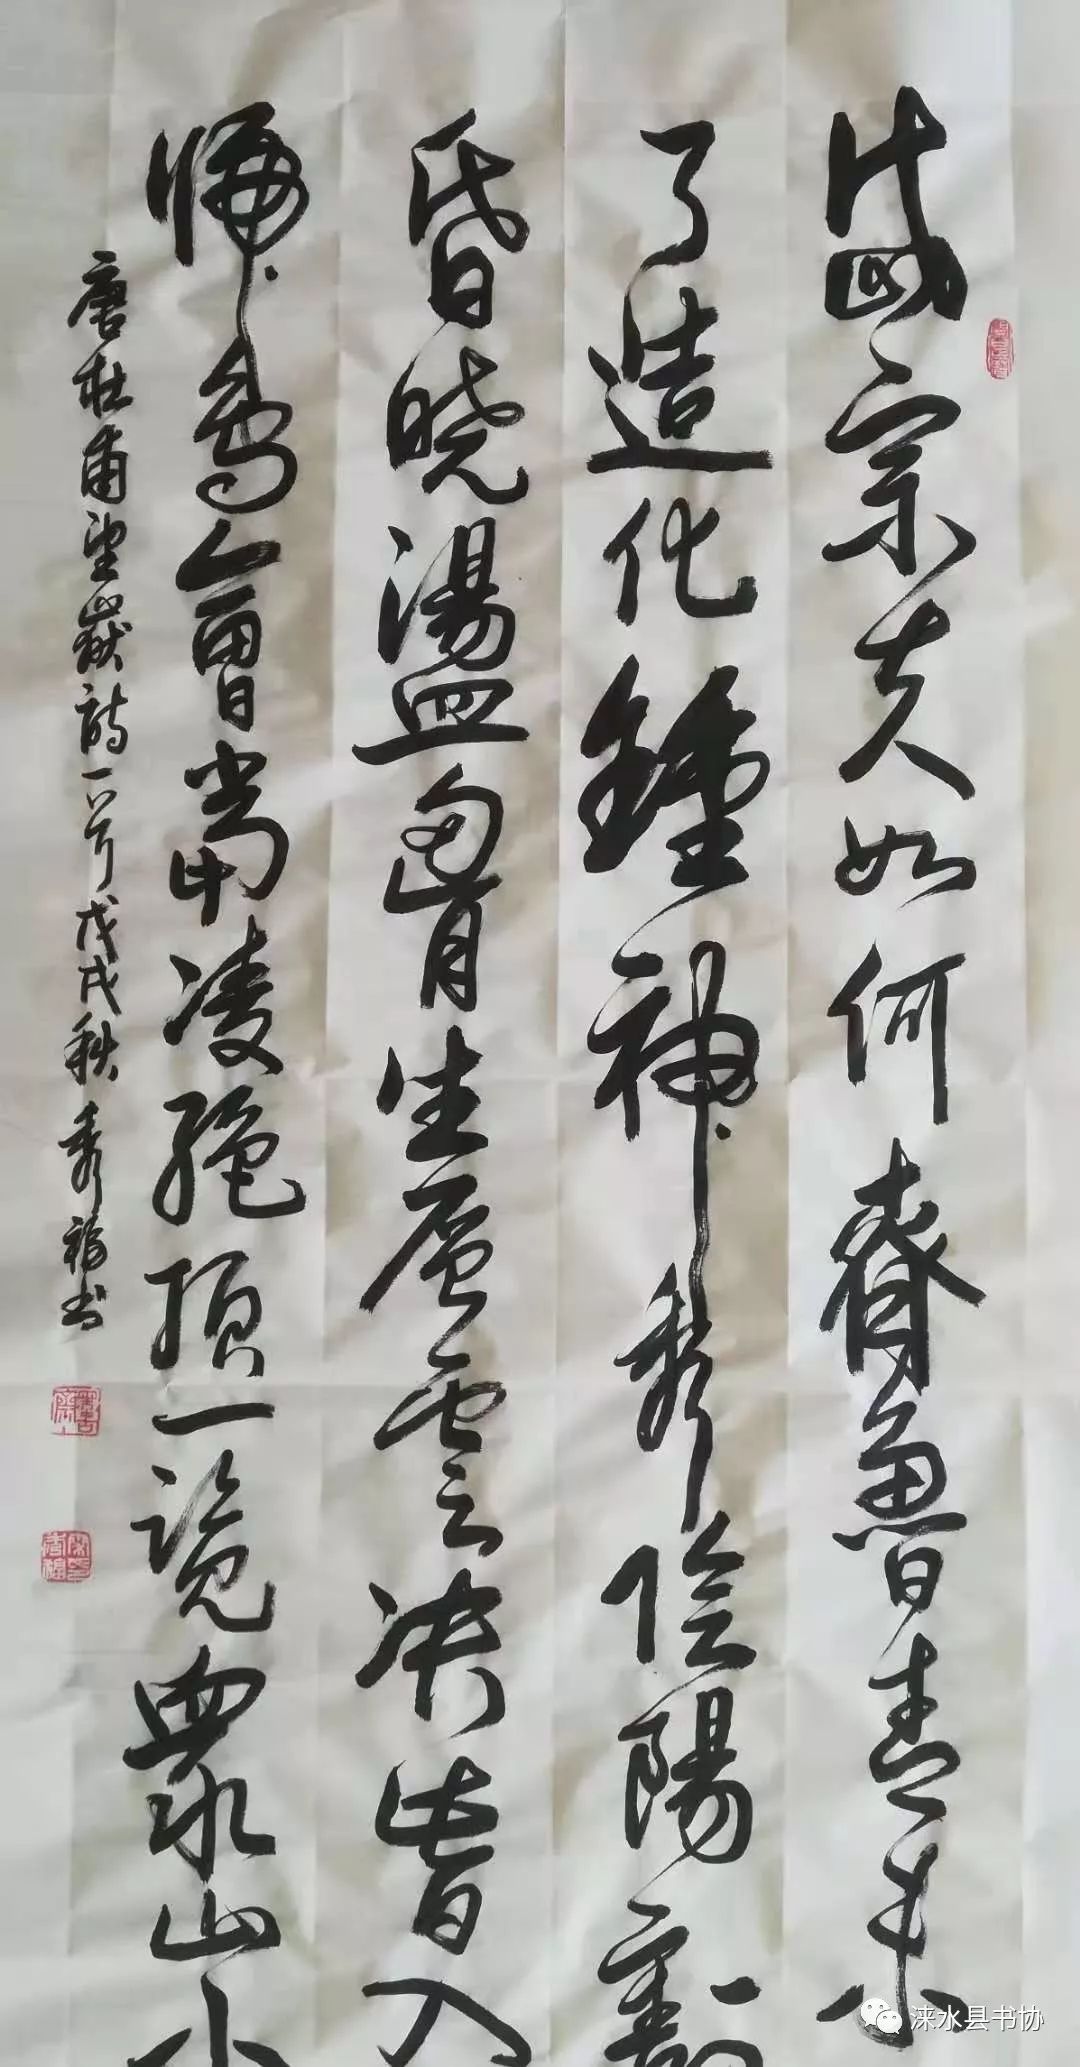 岱宗夫如何齊魯青未
了造化鍾神秀陰陽割
昏曉盪胸生層雲決眥入
歸鳥會當凌絕頂一覽眾山小
唐杜甫望嶽詩一首戊戌秋秀福书
涞水县书协